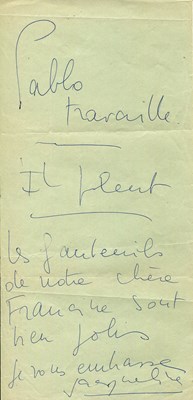 Pablo
travaille
Il pleut
Les fauteuils
de notre chère
Francine sont
bien jolis
Je vous embrasse
Jacqueline